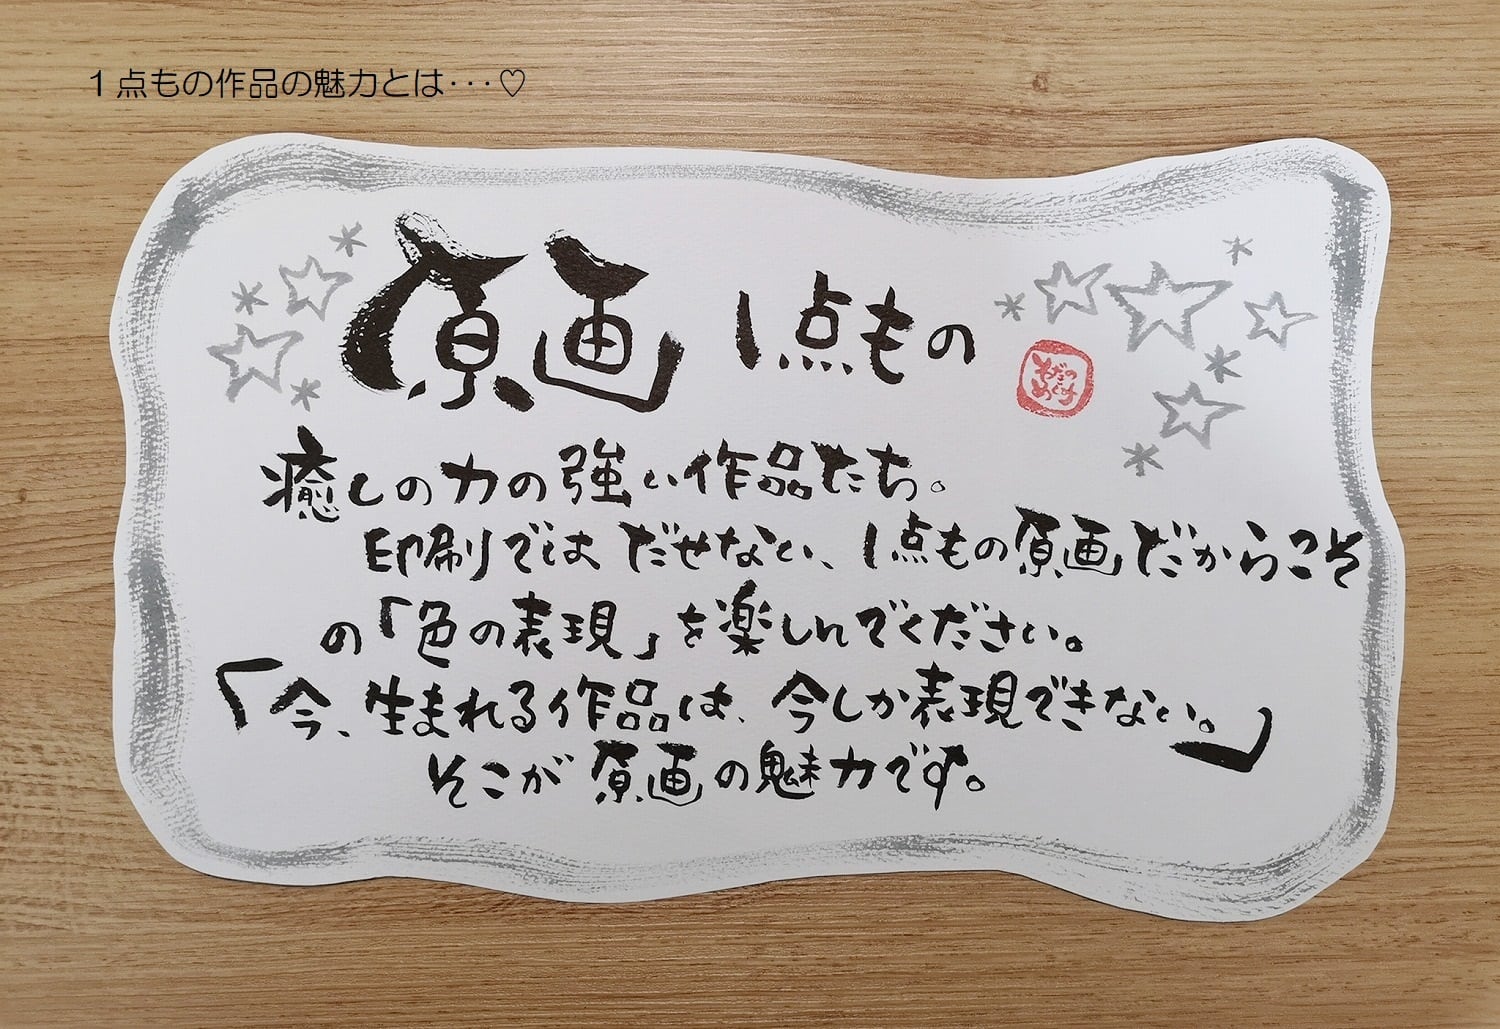 1点もの作品の魅力とは･･･♡
原画 1点もの
わだの
めぐす
癒しの力の強い作品たち。
印刷ではだせない、1点もの原画だからこそ
の「色の表現」を楽しんでください。
「今、生まれる作品は、今しか表現できない。」
そこが原画の魅力です。